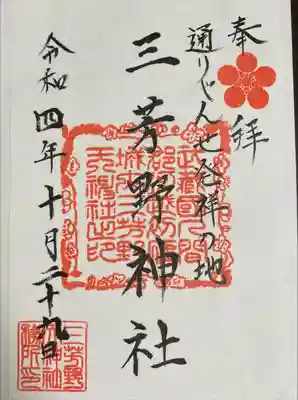 奉拝
通りゃんせ発祥の地
武蔵國入間
城内三芳野
三芳野神社
令和四年十月二十九日
三芳野
神社社
務所印